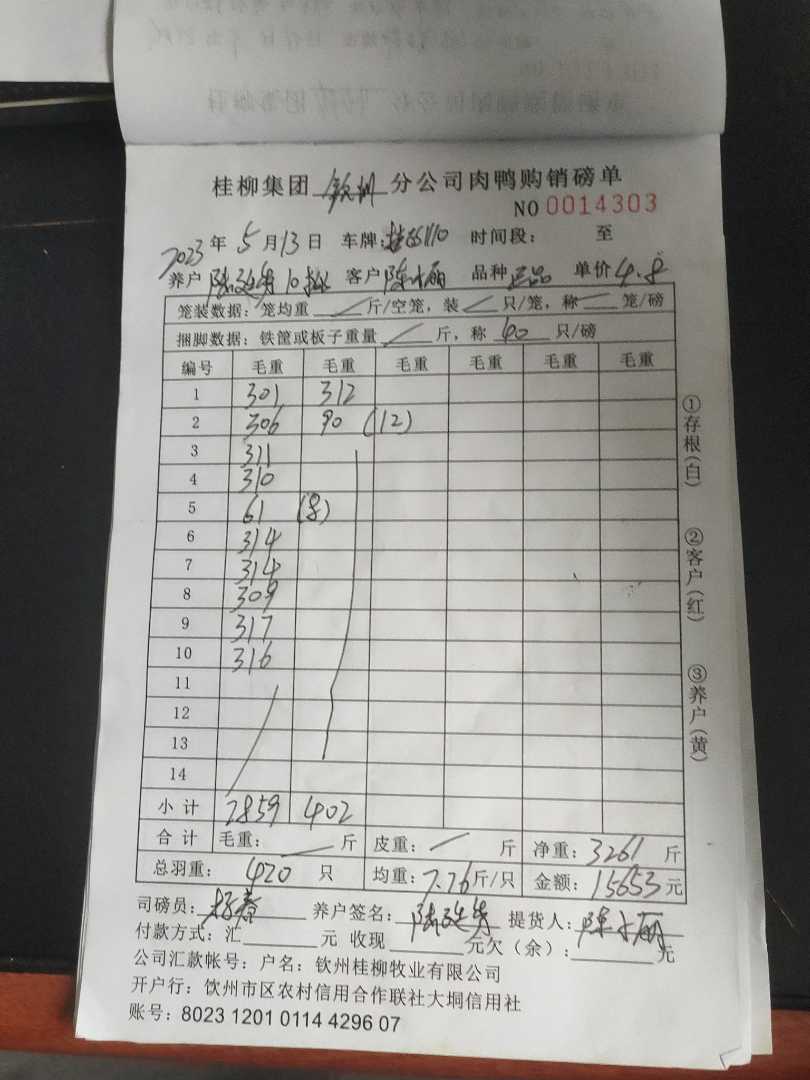 桂柳集团 钦州 分公司肉鸭购销磅单
NO 0014303
2023年 5月13日 车牌: 时间段: 至
养户 10批 客户 陈小丽 品种 正品 单价 4.8
笼装数据: 笼均重 斤/空笼, 装 只/笼, 称 笼/磅
捆脚数据: 铁筐或板子重量 斤, 称 60 只/磅
编号 毛重 毛重 毛重 毛重 毛重 毛重
1 301 312
2 306 90 (12)
3 311
4 310
5 61 (8)
6 314
7 314
8 309
9 317
10 316
11
12
13
14
小计 2859 402
合计 毛重: 斤 皮重: 斤 净重: 3261 斤
总羽重: 420 只 均重: 7.76 斤/只 金额: 15653 元
司磅员: 养户签名: 提货人: 陈小丽
付款方式: 汇 元 收现 元欠(余): 元
公司汇款帐号: 户名: 钦州桂柳牧业有限公司
开户行: 钦州市区农村信用合作联社大垌信用社
账号: 8023 1201 0114 4296 07
①存根(白) ②客户(红) ③养户(黄)